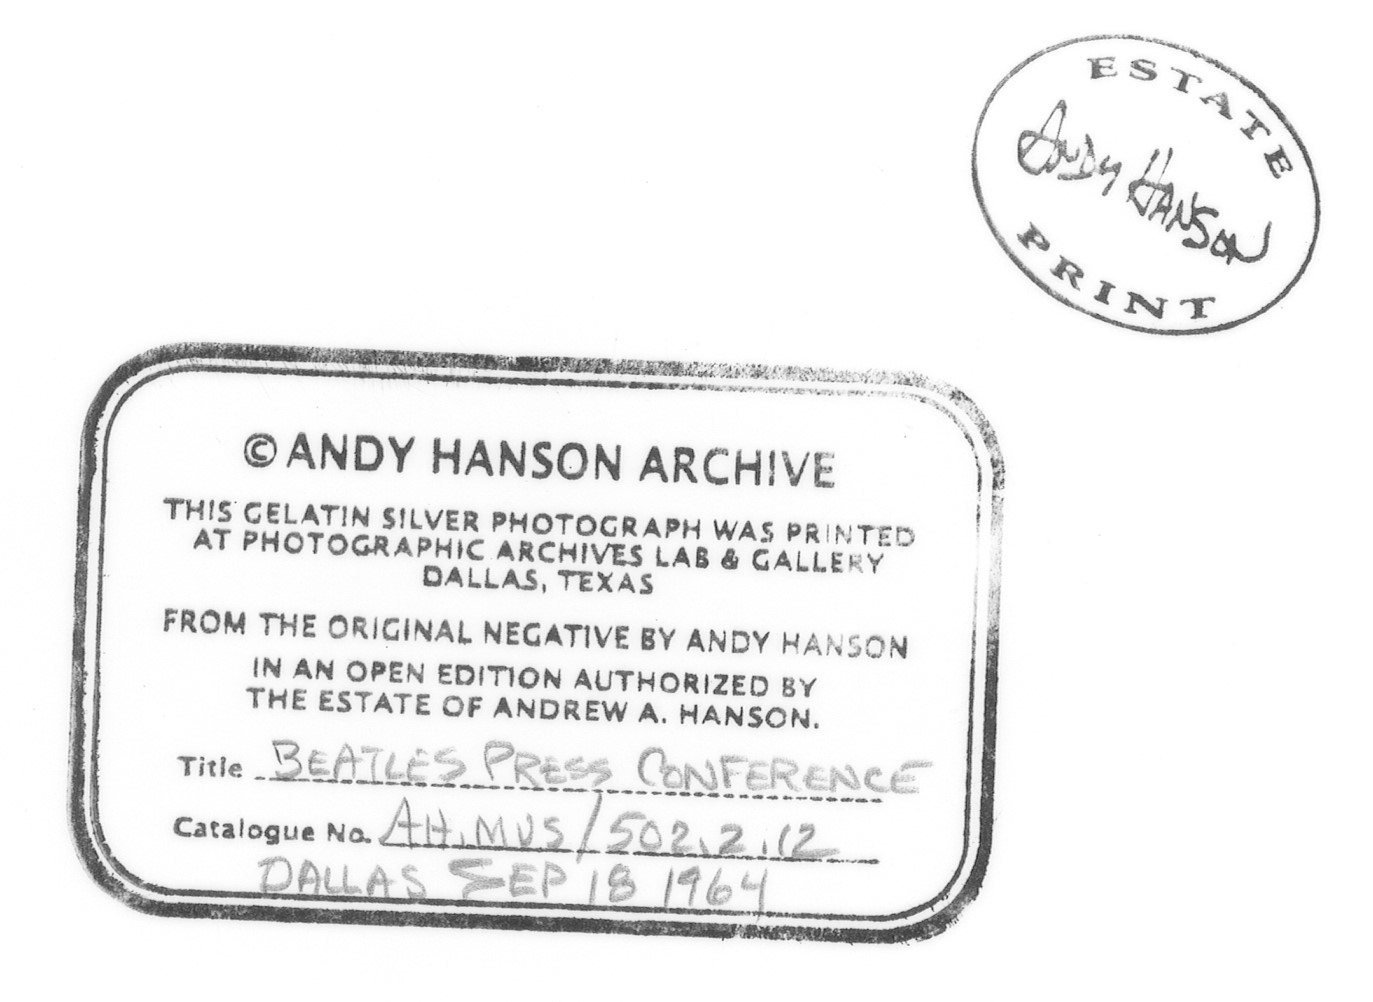 ESTATE
ANDY HANSON
PRINT
© ANDY HANSON ARCHIVE
THIS GELATIN SILVER PHOTOGRAPH WAS PRINTED
AT PHOTOGRAPHIC ARCHIVES LAB & GALLERY
DALLAS, TEXAS
FROM THE ORIGINAL NEGATIVE BY ANDY HANSON
IN AN OPEN EDITION AUTHORIZED BY
THE ESTATE OF ANDREW A. HANSON.
Title BEATLES PRESS CONFERENCE
Catalogue No. AH.MUS/502.2.12
DALLAS SEP 18 1964